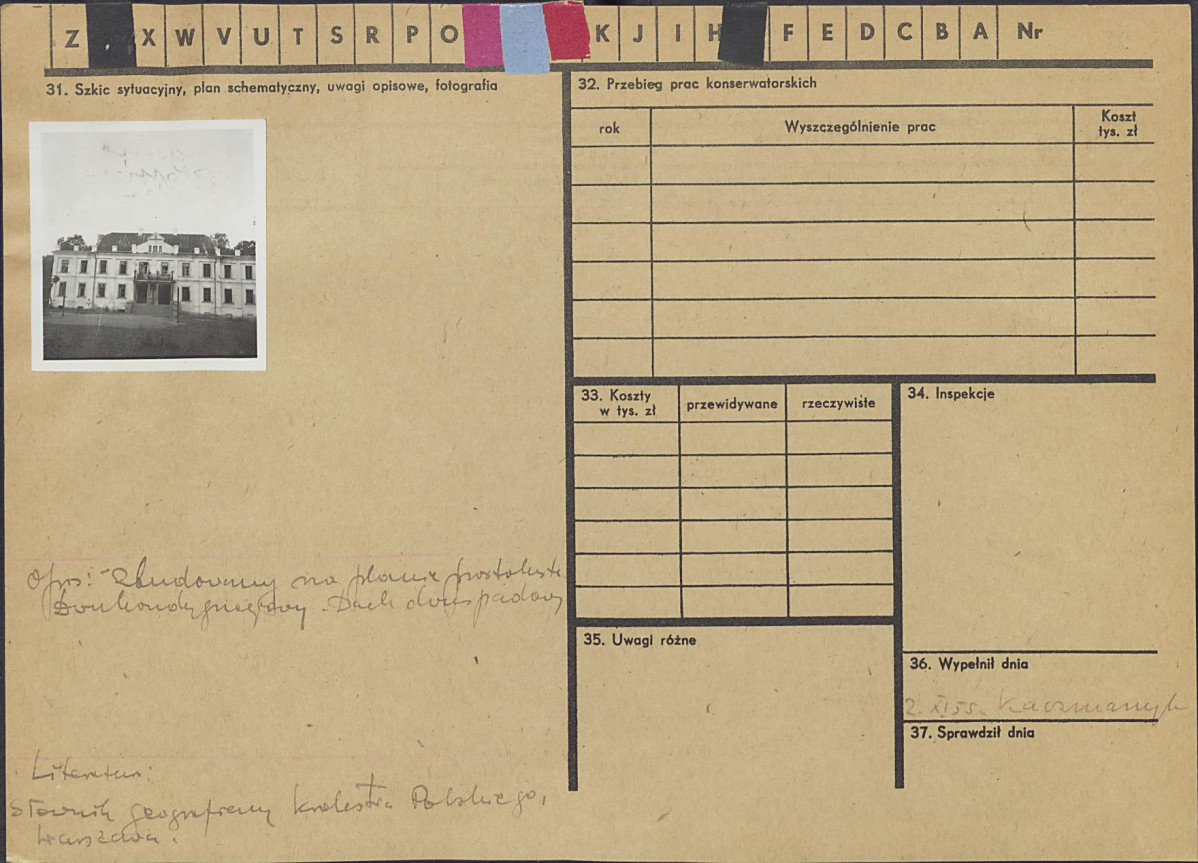 Z X W V U T S R P O K J I H F E D C B A Nr
31. Szkic sytuacyjny, plan schematyczny, uwagi opisowe, fotografia
Opis: Zbudowany na planie prostokąta
Dwukondygnacjowy. Dach dwuspadowy
Literatura:
Słownik geograficzny Królestwa Polskiego,
Warszawa.
32. Przebieg prac konserwatorskich
rok Wyszczególnienie prac Koszt
tys. zł
33. Koszty
w tys. zł
przewidywane rzeczywiste
34. Inspekcje
35. Uwagi różne
36. Wypełnił dnia
2. XI 55.
37. Sprawdził dnia